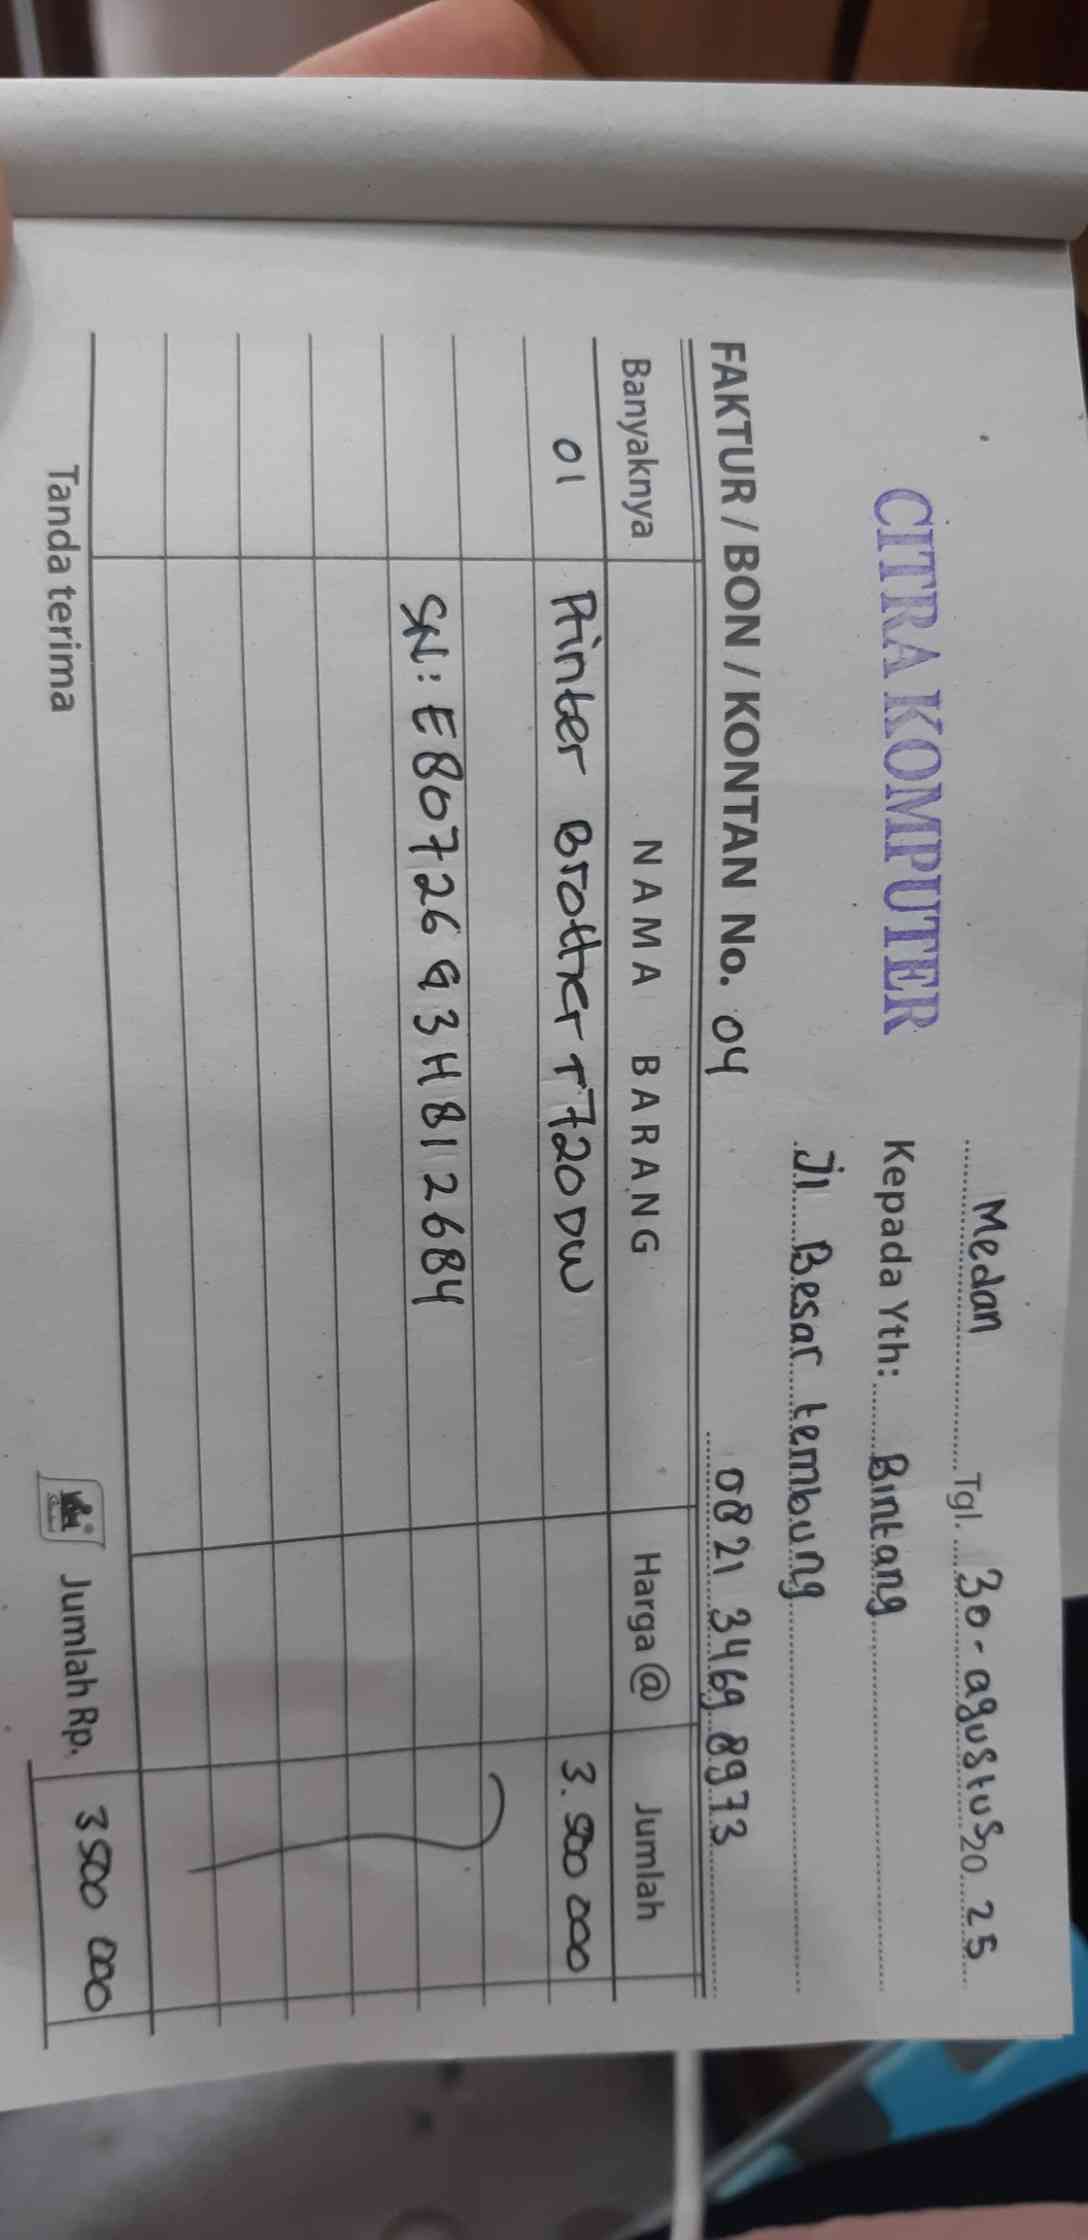 CITRA KOMPUTER
Medan Tgl. 30-agustus 20 25
Kepada Yth: Bintang
Jl Besar tembung
FAKTUR / BON / KONTAN No. 04 0821 3469 8973
Banyaknya NAMA BARANG Harga @ Jumlah
01 Printer Brother T720DW 3.500 000
SN: E80726G3H812684
Tanda terima Jumlah Rp. 3500 000